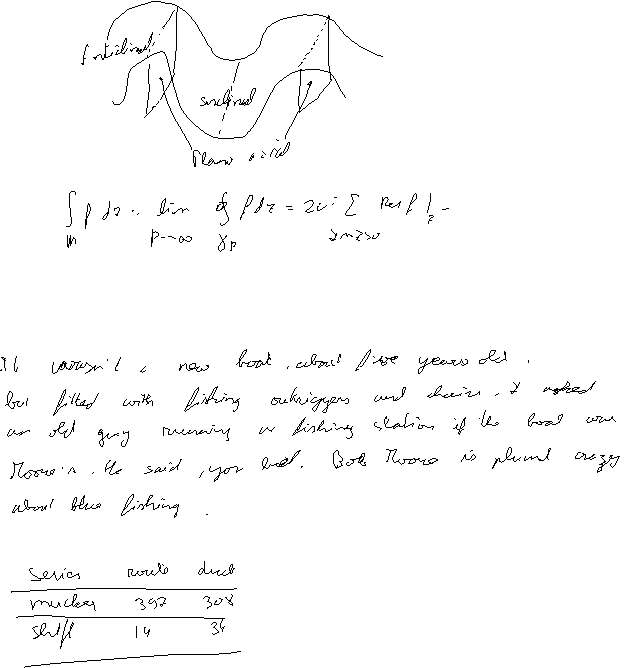 Anticlinal
Sinclinal
Piano assial
∫ f dz = lim ∮ f dz = 2πi ∑ Res f |z
ℝ ρ→∞ γρ Im z>0
It wasn't a new boat, about five years old,
but fitted with fishing outriggers and chairs. I asked
an old guy running a fishing station if the boat was
Moore's. He said, you bet. Bob Moore is plumb crazy
about blue fishing.
Series route duct
mucker 392 308
shift 14 34